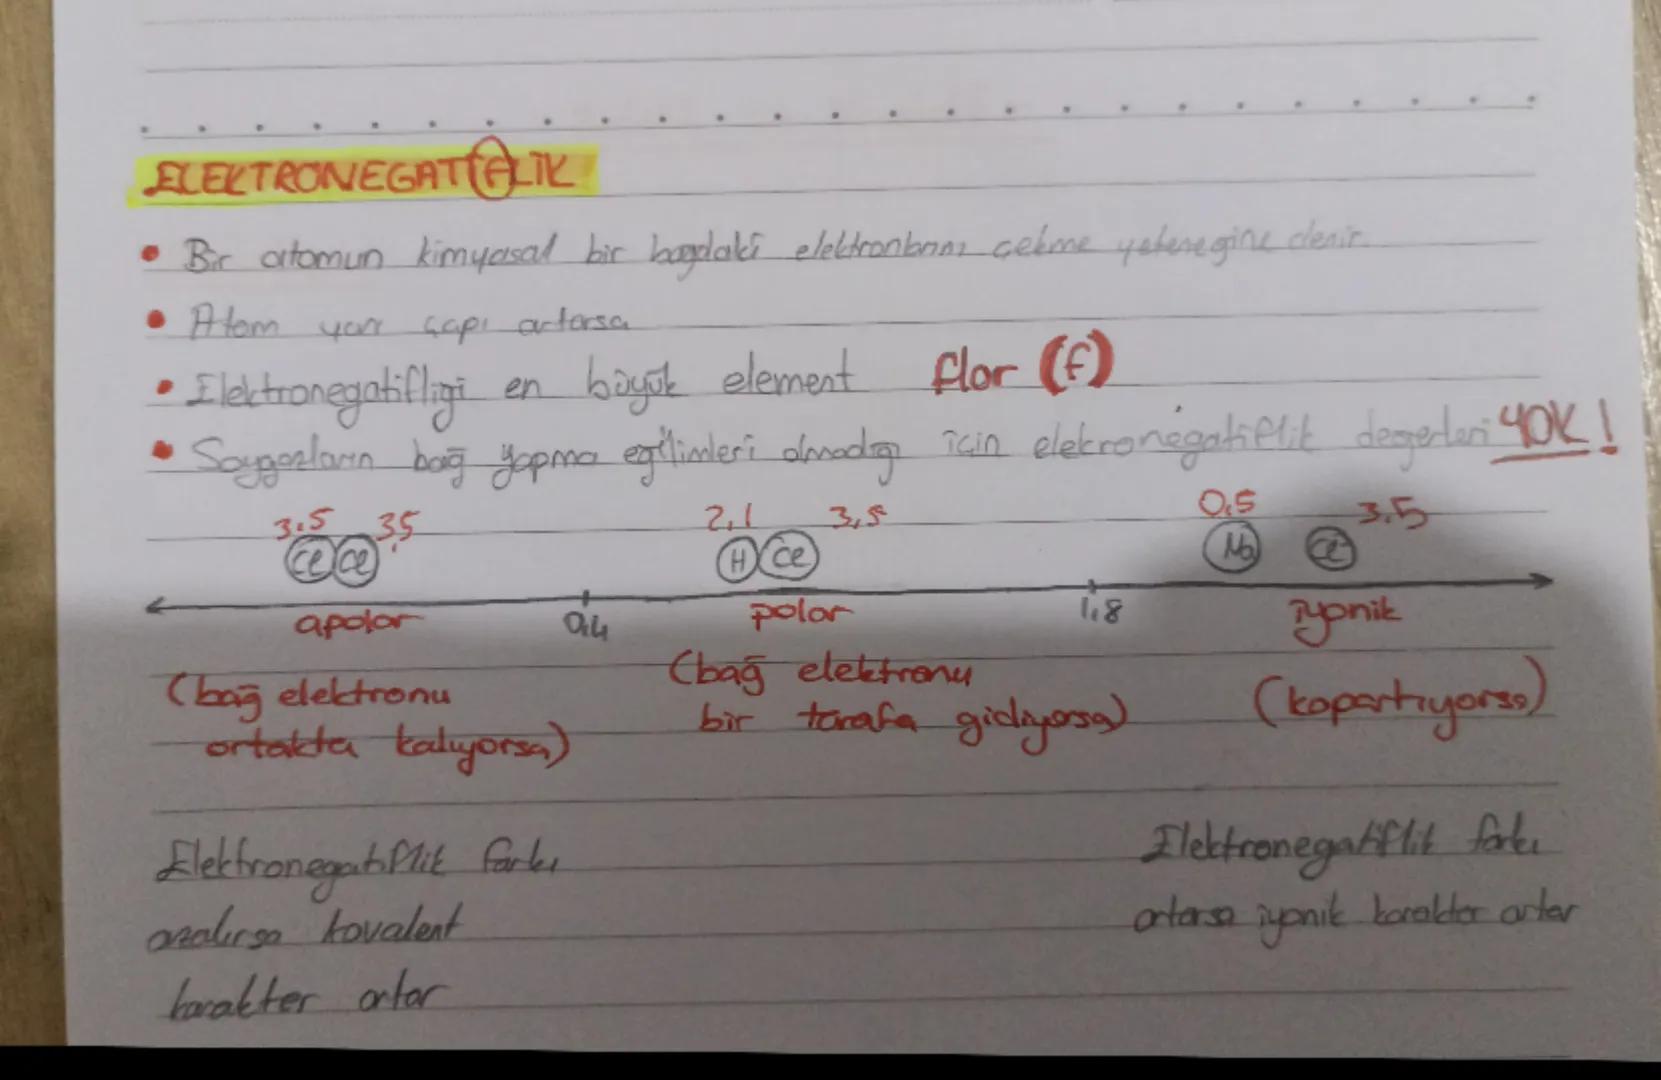 ELEKTRONEGATİFLİK
• Bir atomun kimyasal bir bağdaki elektronlarını çekme yeteneğine denir.
• Atom yarı çapı artarsa
• Elektronegatifliği en büyük element flor (f)
• Soygazların bağ yapma eğilimleri olmadığı için elekronegatiflik değerleri YOK!
3.5 3,5 2,1 3,5 0,5 3.5
Cl Cl H Cl Na Cl
apolar 0,4 polar 1,8 iyonik
(bağ elektronu (bağ elektronu (kopartıyorsa)
ortakta kalıyorsa) bir tarafa gidiyorsa)
Elektronegatiflik farkı Elektronegatiflik farkı
azalırsa kovalent artarsa iyonik karakter artar
karakter artar